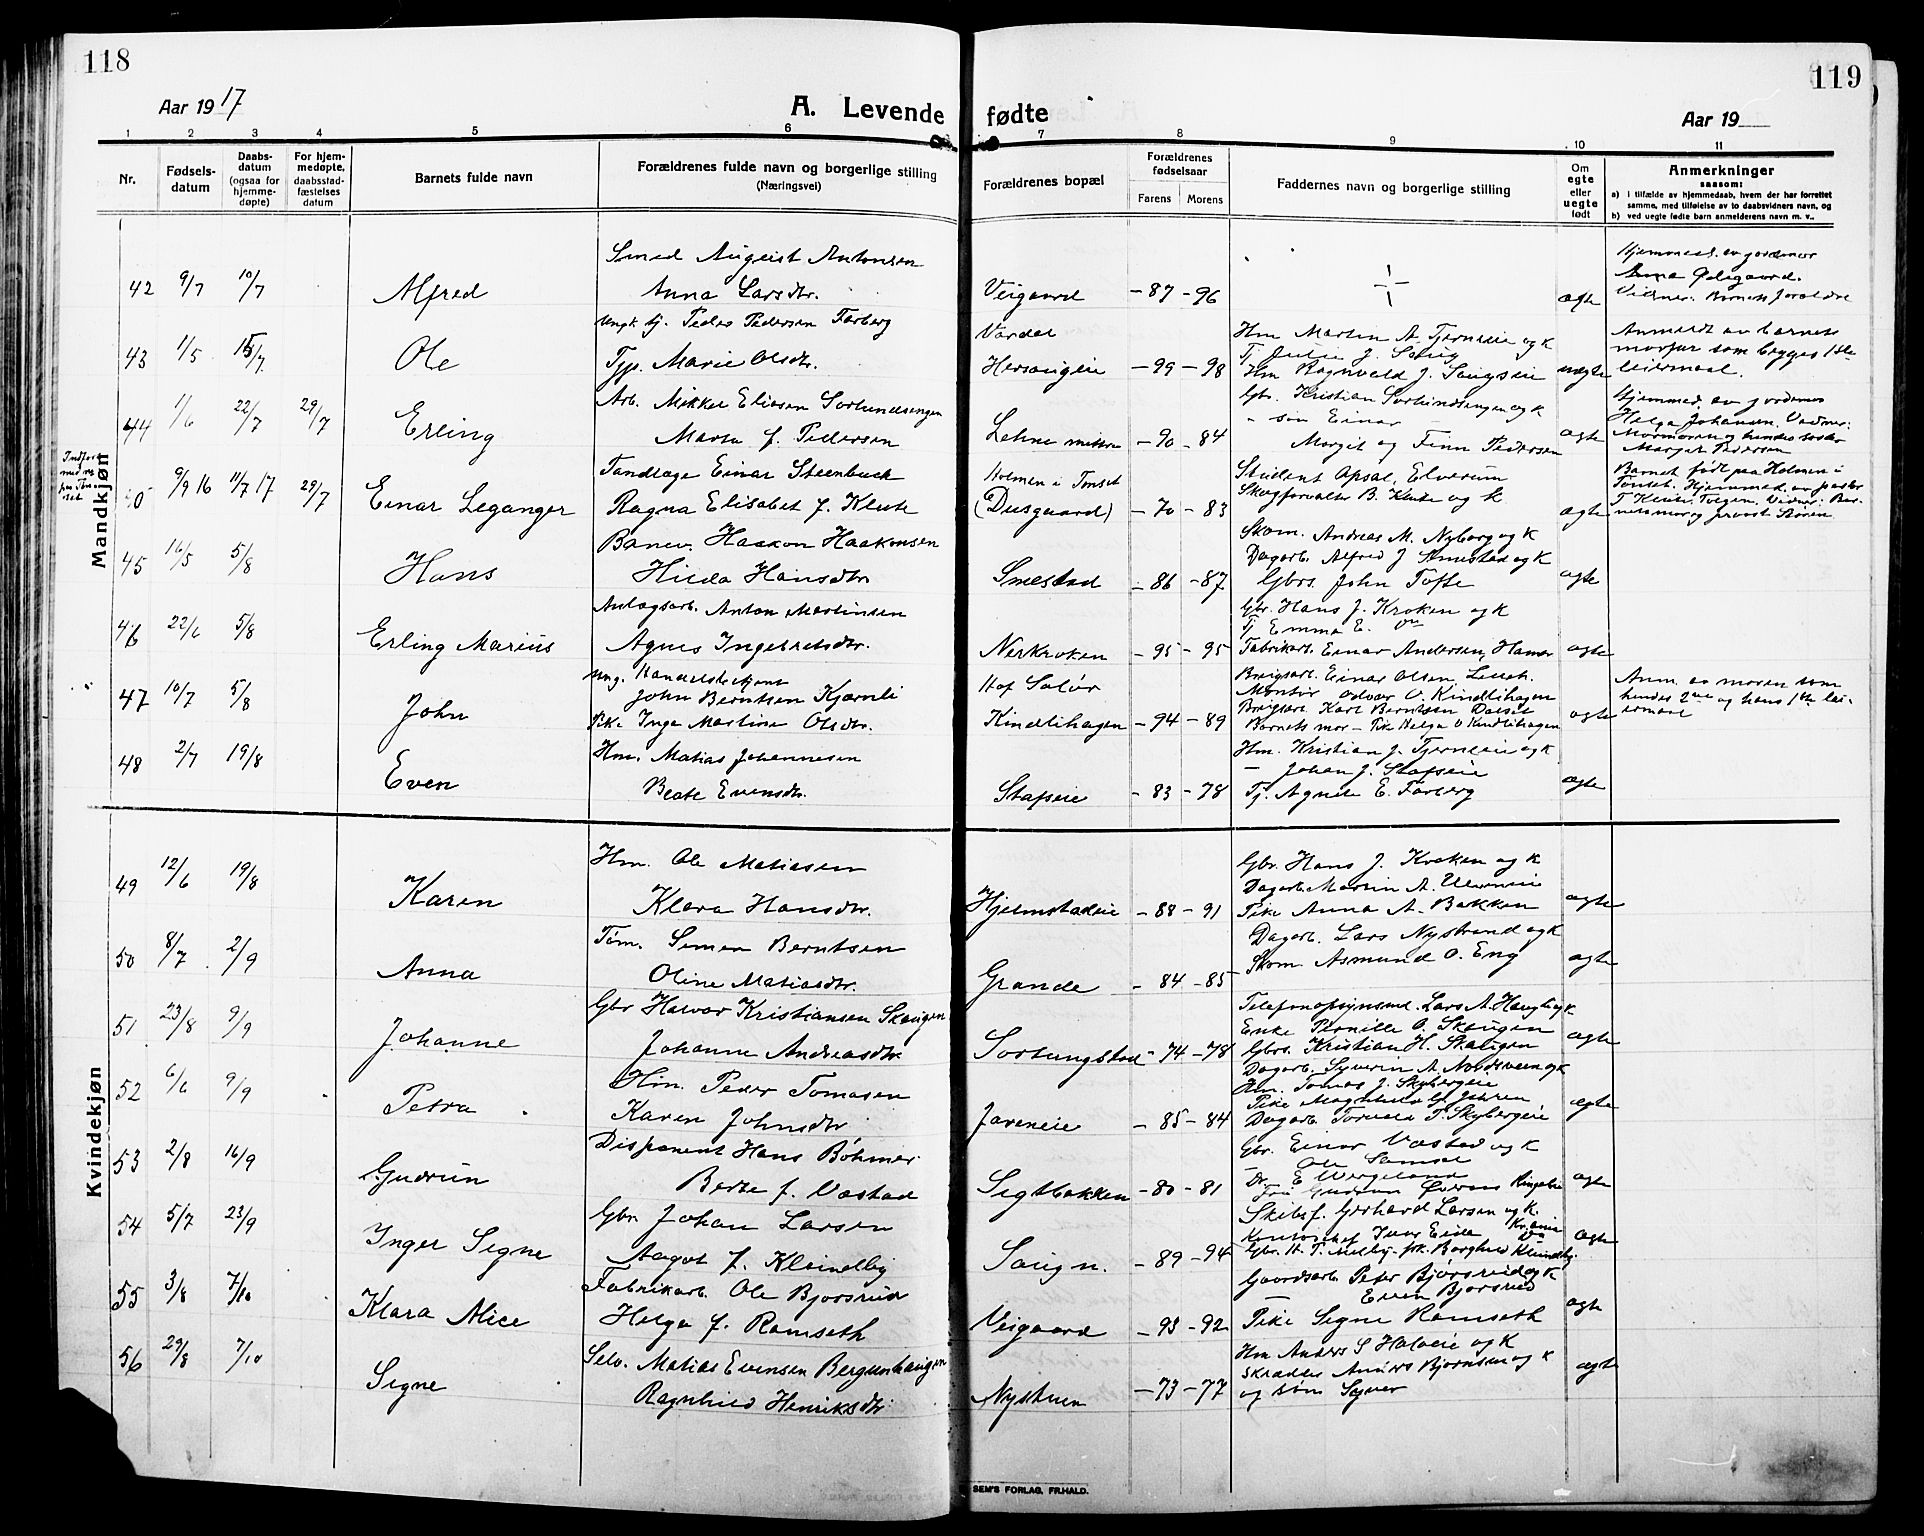 118
119
Aar 1917
A. Levende fødte
Aar 19
1 2 3 4 5 6 7 8 9 10 11
Nr.
Fødsels-
datum
Daabs-
datum
(ogsaa for
hjemme-
døpte)
For hjem-
medøpte,
daabsstad-
fæstelses
datum
Barnets fulde navn
Forældrenes fulde navn og borgerlige stilling
(Næringsvei)
Forældrenes bopæl
Forældrenes
fødselsaar
Farens Morens
Faddernes navn og borgerlige stilling
Om
egte
eller
uegte
født
Anmerkninger
saasom:
a) i tilfælde av hjemmedaab, hvem der har forrettet
samme, med tilføielse av to daabsvidners navn, og
b) ved uegte fødte barn anmelderens navn m. v..
Mandkjøn
Smed August Antonsen
42 9/7 10/7 Alfred Anna Larsdtr. Veigaard -87 -96 ægte
Hjemmed. av jordemor
Anna Ødegaard.
Vidner: Barnets forældre
Ungk. tj. Peder Pedersen Farberg Vardal
43 1/5 15/7 Ole Tjp. Marie Olsdtr. Hersaugeie -99 -98 uægte
Hm Martin A. Tjerneie og k
Tj Julie J. Saug
Hm Ragnvald J. Saugseie
Anmeldt av barnets
morfar som begges 1ste
leiermaal.
Arb. Mikkel Eliasen Sorlundsengen
44 1/6 22/7 29/7 Erling Marta f. Pedersen Lehne mittre -90 -84 ægte
Gbr. Kristian Sorlundsengen og k
- søn Einar
Margit og Finn Pedersen
Hjemmed. av jordemor
Helga Johansen. Vidner:
Mormoren og hendes søster
Margit Pedersen
9/9 16 11/7 17 29/7 Einar Leganger
Tandlæge Einar Steenbuck
Ragna Elisabet f. Klute
Holmen i Tønset
(Dusgaard) -70 -83 ægte
Student Opsal, Elverum
Skogforvalter B. Klute og k
Barnet født paa Holmen i
Tønset. Hjemmed. av pastor
Banev. Haakon Haakonsen
45 16/5 5/8 Hans Hilda Hansdtr. Smestad -86 -87 ægte
Skom. Andreas M. Nyborg og k
Dagarb. Alfred J Smestad og k
Gbrs. John Tofte
Anlægsarb. Anton Martinsen
46 22/6 5/8 Erling Marius Agnes Ingebretsdtr. Nerkroken -95 -95 ægte
Gbr. Hans J. Kroken og k
Tj Emma E.
Fabrikarb. Einar Andersen, Hamar
Ung. Handelsbetjent
John Berntsen Kjærnli
47 10/7 5/8 John Pike Inga Martine Olsdtr.
Hof Solør
Kindlihagen -94 -89 ægte
Brugsarb. Einar Olsen,
Montør Odvar O. Kindlihagen
Brugsarb. Karl Berntsen
Barnets mor - Pike Helga O Kindlihagen
Anm. av moren som
hendes 2net og hans 1ste lei-
ermaal
Hm. Matias Johannesen
48 2/7 19/8 Even Beate Evensdtr. Stafseie -83 -78 ægte
Hm. Kristian J. Tjerneie og k
- Johan J. Stafseie
Tj. Agnete E. Farberg
Kvindekjøn
Hm. Ole Matiasen
49 12/6 19/8 Karen Klara Hansdtr. Hjelmstadeie -88 -91 ægte
Gbr. Hans J. Kroken og k
Dagarb. Martin A.
Pike Anna A. Bakken
Tøm. Simen Berntsen
50 8/7 2/9 Anna Oline Matiasdtr. Grande -84 -85 ægte
Dagarb. Lars Nystrand og k
Skom. Asmund O. Eng
Gbr Halvor Kristiansen Skaugen
51 23/8 9/9 Johanne Johanne Andreasdtr. Sorlungstad -74 -78 ægte
Telefonopsynsmd. Lars A. Haugli og k
Enke Pernille O. Skaugen
Gbrs. Kristian H. Skaugen
Hm. Peder Tomasen
52 6/6 9/9 Petra Karen Johnsdtr Jøreneie -85 -84 ægte
Dagarb. Syverin A. Nordsveen og k
Hm. Tomas J. Skybergeie
Pike Magnhild
Dagarb. Torvald T. Skybergeie
Disponent Hans Böhmer
53 2/8 16/9 Gudrun Berte f. Vastad Segtbakken -80 -81 ægte
Gbr. Einar Vastad og k
- Ole Samdal
Dr. E Wergeland
Fru Gudrun
Gbr. Johan Larsen
54 5/7 23/9 Inger Segne Aagot f. Kleindby Saug n. -89 -94 ægte
Skibsf. Gerhard Larsen og k.
Kontorchef Ivar Eide
Gbr. H. T. Melby. frk. Borghild Kleindby.
Fabrikarb. Ole Bjørsrud
55 3/8 7/10 Klara Alice Helga f. Ramseth Veigaard -93 -92 ægte
Gaardsarb. Peter Bjørsrud og k
Even Bjørsrud
Pike Segne Ramseth
Selv. Matias Evensen Berguenhaugen
56 29/8 7/10 Segne Ragnhild Henriksdtr Nystuen -73 -77 ægte
Hm Anders S Halveie og k
Skrædder Anders Bjørnsen og k
og søn Syver
SEM'S FORLAG, FR.HALD.